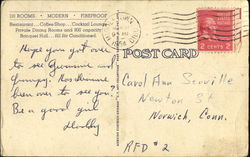 111 ROOMS • MODERN • FIREPROOF
Restaurant...Coffee Shop...Cocktail Lounge
Private Dining Rooms and 500 capacity
Banquet Hall. All Air Conditioned.
POST CARD
2 CENTS 2
Hope you got over
to see Grammie and
Grampy. Has
been over to see you?
Be a good girl
Carol Ann
Newton St
Norwich, Conn.
RFD #2